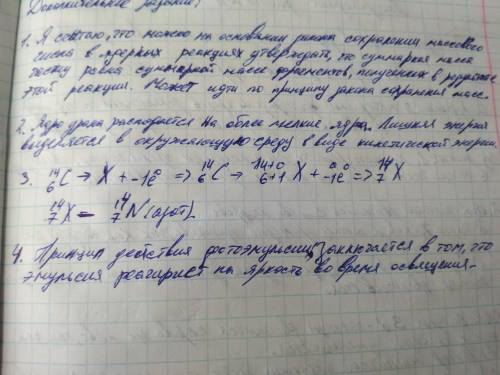 Дополнительные задания:
1. Я считаю, что можно на основании закона сохранения массового
числа в ядерных реакциях утверждать, что суммарная масса
равна суммарной массе фрагментов, полученных в результате
этой реакции. Может идти по принципу закона сохранения масс.
2. Ядро урана распадается на более мелкие ядра. Лишняя энергия
выделяется в окружающую среду в виде кинетической энергии.
3. ¹⁴₆C → X + ₋₁e⁰ => ¹⁴₆C → ¹⁴⁺⁰₆₊₁X + ⁰₋₁e => ¹⁴₇X
¹⁴₇X – ¹⁴₇N (азот).
4. Принцип действия фотоэмульсии заключается в том, что
эмульсия реагирует на яркость во время освещения.